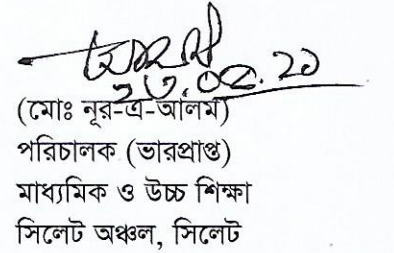 (মোঃ নূর-এ-আলম)
পরিচালক (ভারপ্রাপ্ত)
মাধ্যমিক ও উচ্চ শিক্ষা
সিলেট অঞ্চল, সিলেট